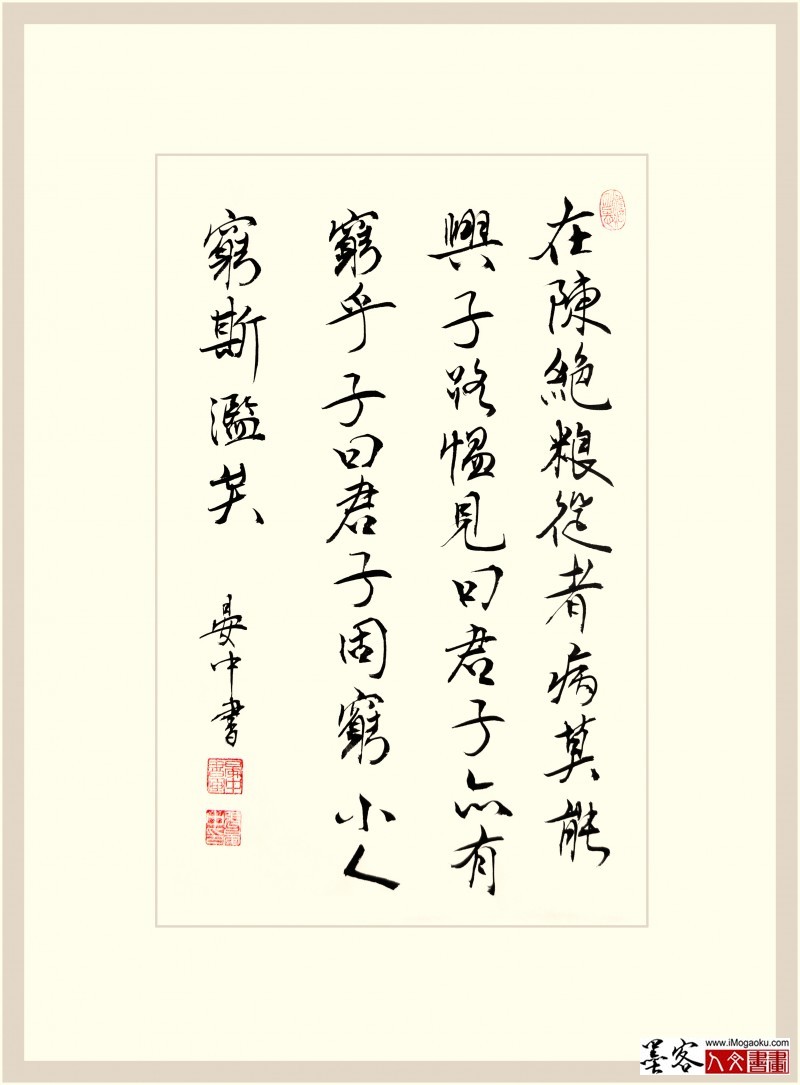 在陳絕粮從者病莫能
興子路愠見曰君子亦有
窮乎子曰君子固窮小人
窮斯濫矣
晏中書
墨客
www.iMogaoku.com
人文書畫